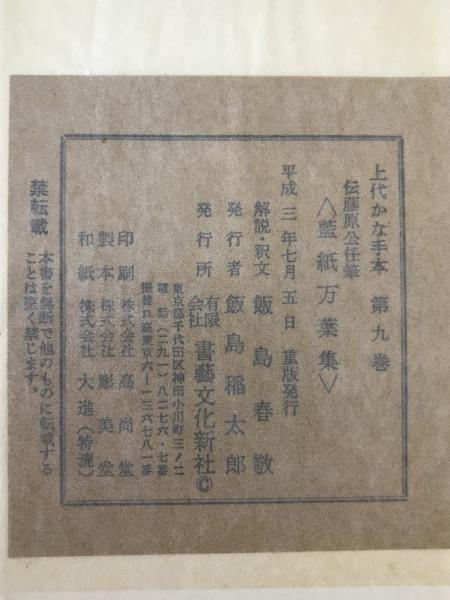 上代かな手本 第九巻
伝藤原公任筆
〈藍紙万葉集〉
平成三年七月五日 重版発行
解説・釈文 飯島春敬
発行者 飯島稲太郎
発行所 有限会社 書藝文化新社©
東京都千代田区神田小川町三ノ二
電話(二九一)八二七六・七番
振替口座東京六―一三六七八一番
印刷 株式会社 高尚堂
製本 株式会社 彫美堂
和紙 株式会社 大進(特漉)
禁転載 本書を無断で他のものに転載する
ことは強く禁じます。